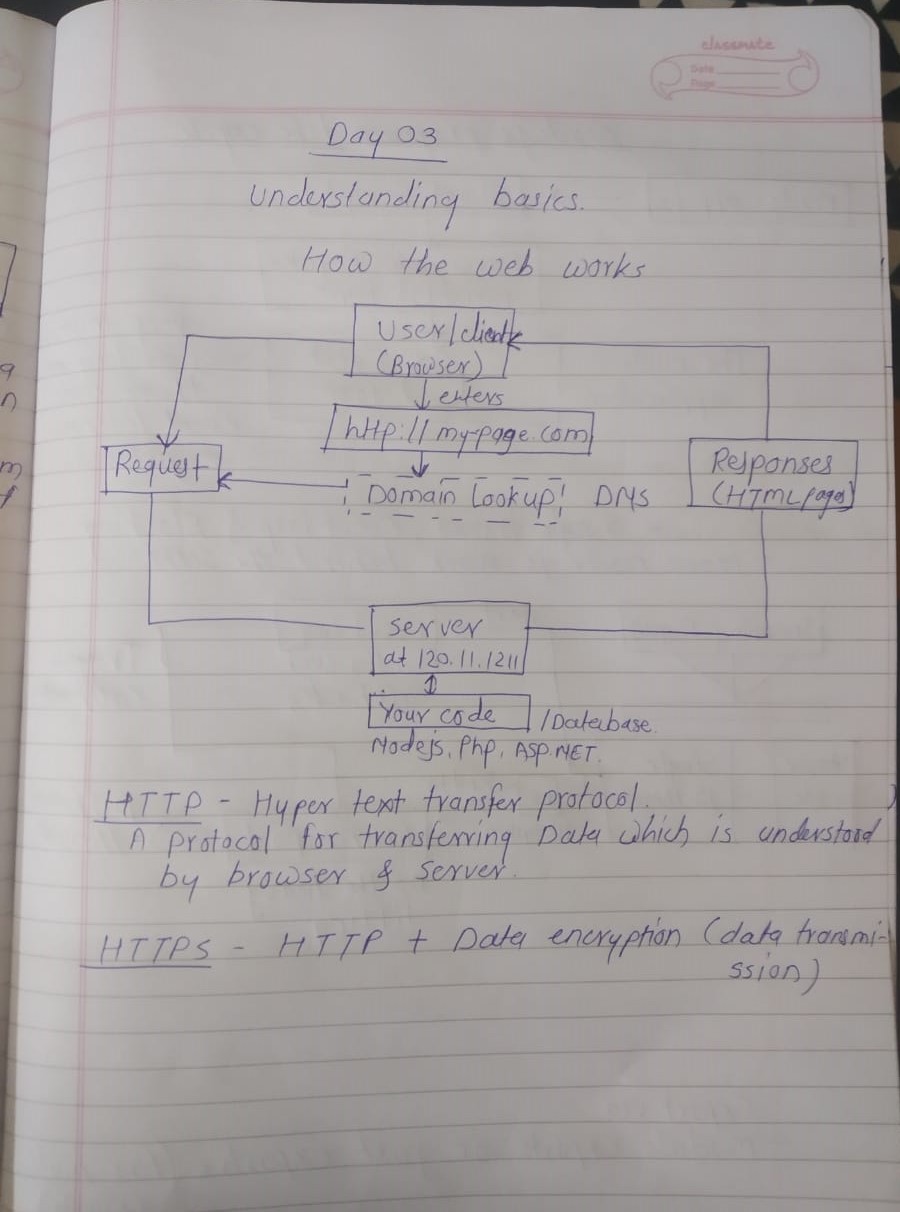 classmate
Date
Page
Day 03
Understanding basics.
How the web works
User/client
(Browser)
enters
http://my-page.com
Request
Domain Lookup DNS
Responses
(HTML pages)
server
at 120.11.1211
Your code /Database.
Nodejs, Php, ASP.NET.
HTTP - Hyper text transfer protocol.
A protocol for transferring Data which is understood
by browser & server.
HTTPS - HTTP + Data encryption (data transmi-
ssion)